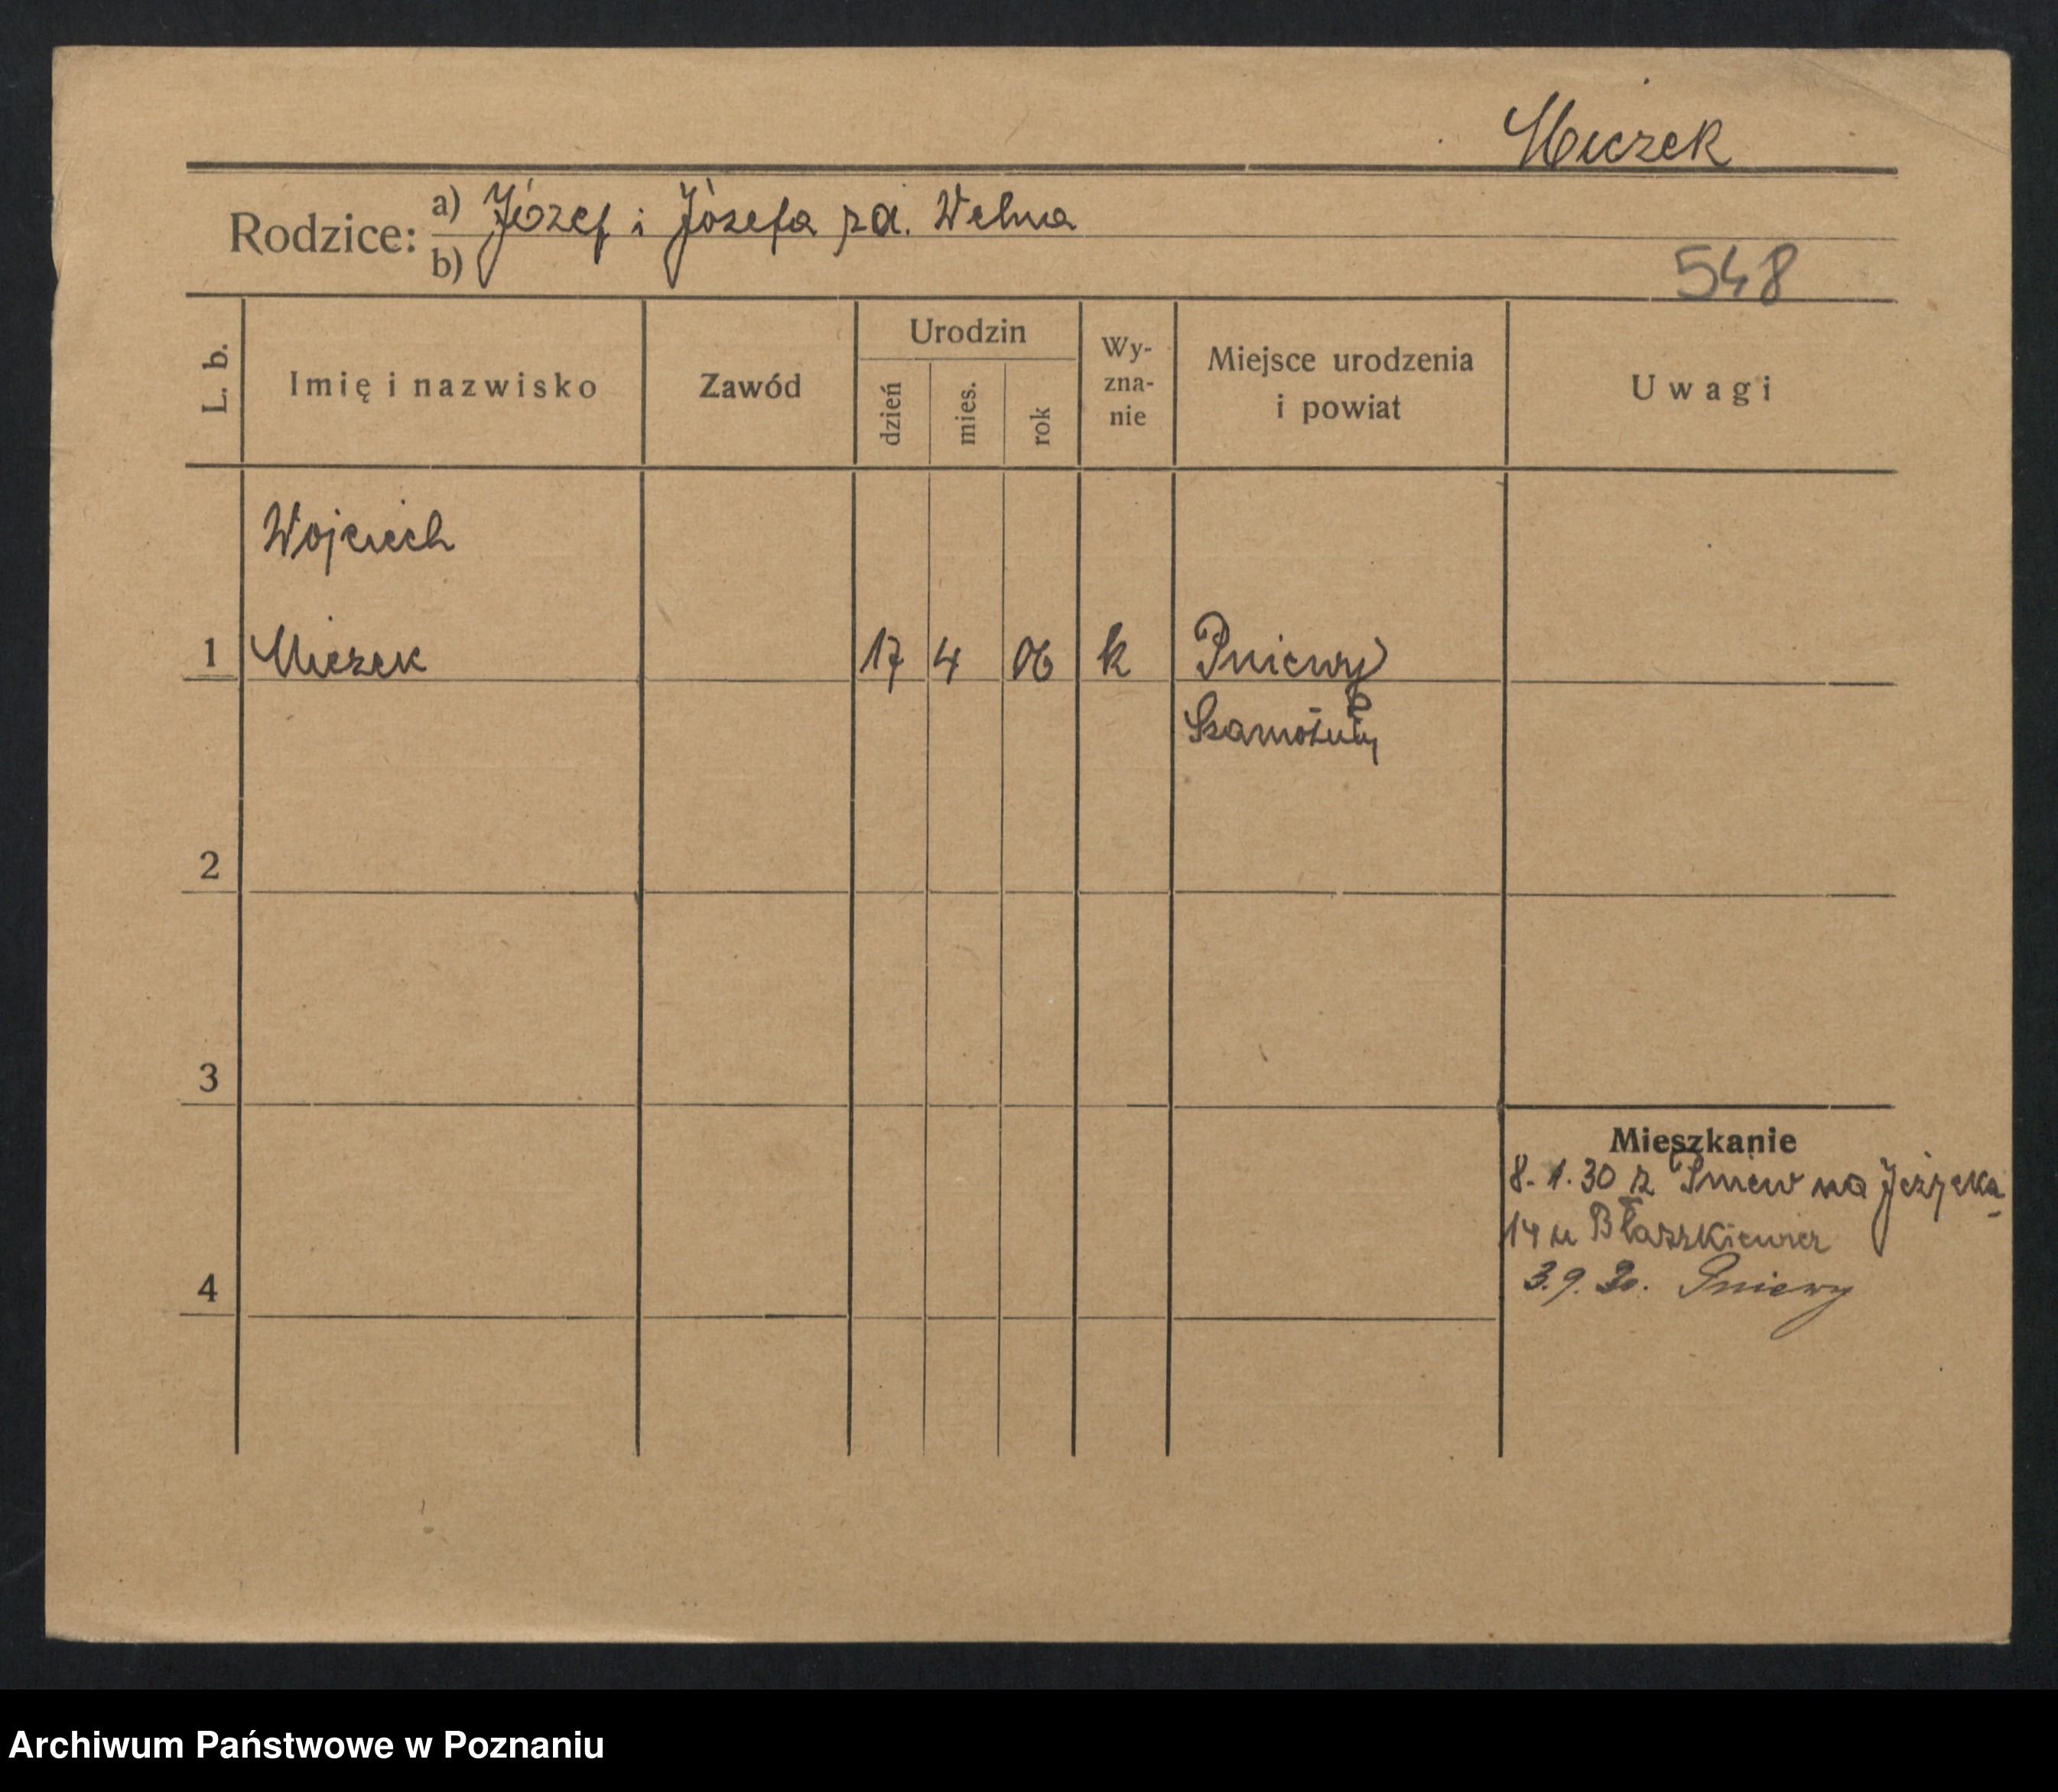 Miczek
Rodzice: a) Józef i Józefa zd. Welna
b)
548
L. b.
Imię i nazwisko
Zawód
Urodzin
dzień
mies.
rok
Wy-
zna-
nie
Miejsce urodzenia
i powiat
Uwagi
Wojciech
1 Miczek 17 4 06 k Pniewy
Szamotuły
2
3
4
Mieszkanie
8. 1. 30 z Pniew na Jeżycka
14 u Błaszkiewicz
3. 9. 30. Pniewy
Archiwum Państwowe w Poznaniu